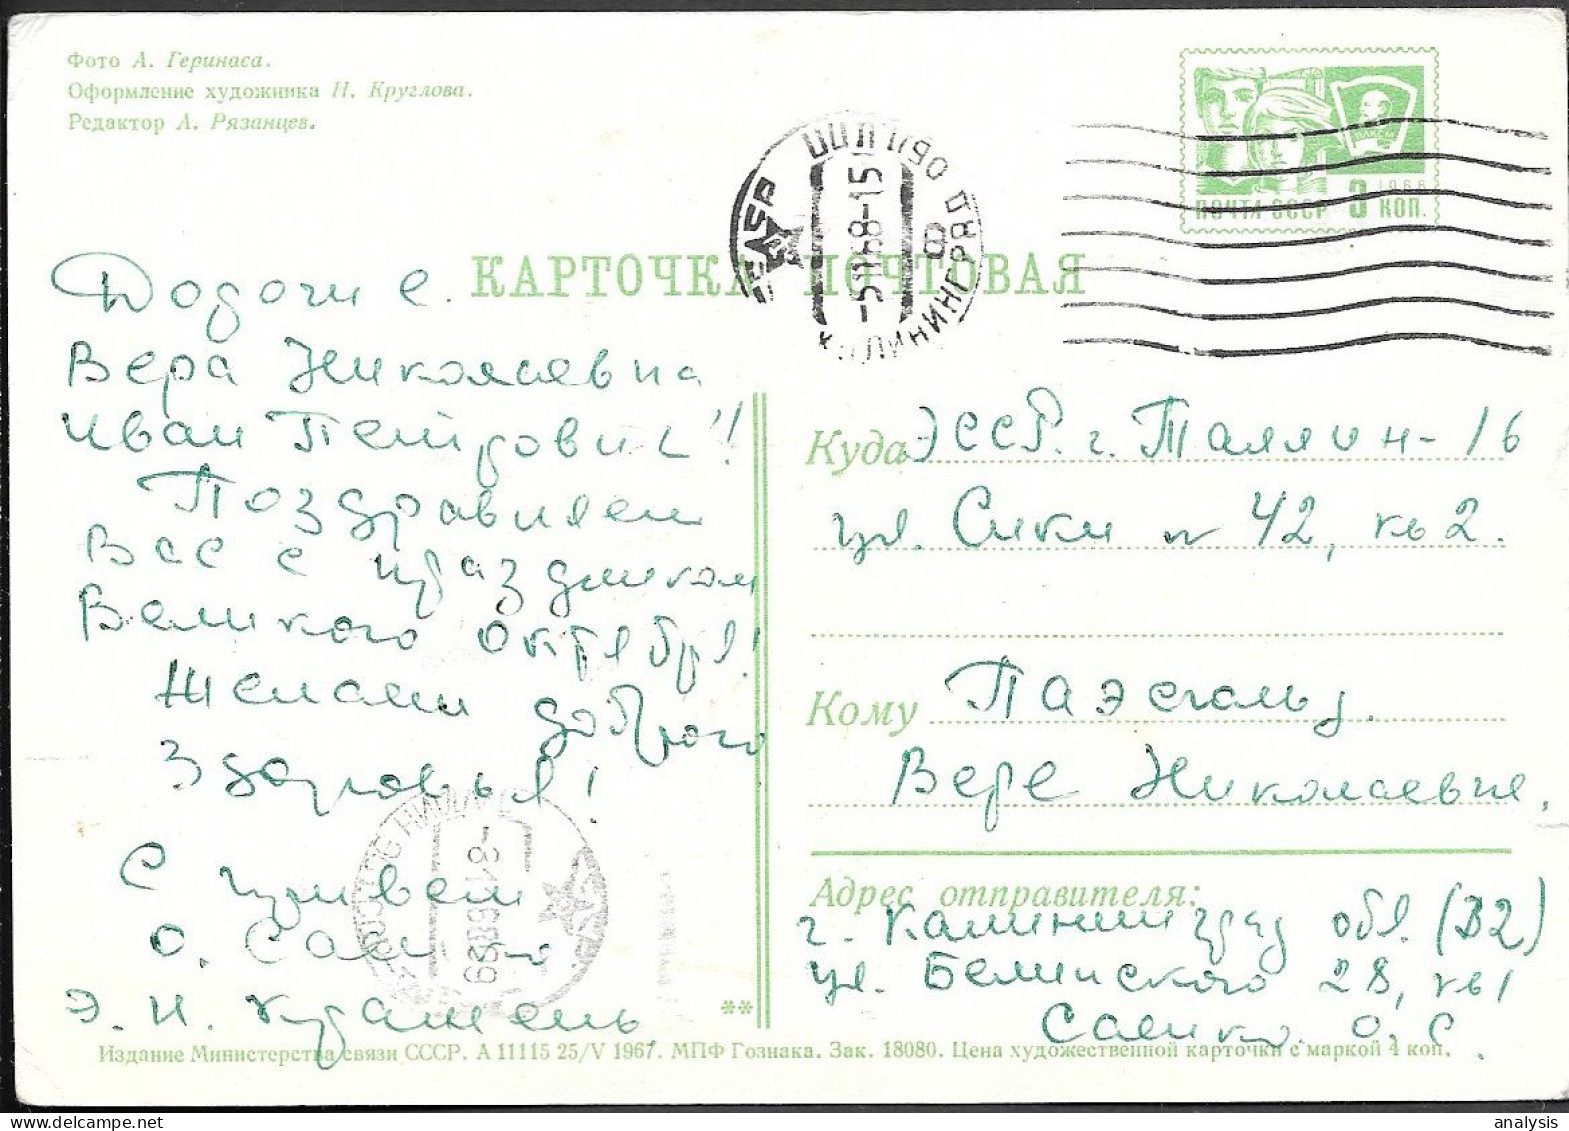 Фото А. Геринаса.
Оформление художника Н. Круглова.
Редактор А. Рязанцев.
ПОЧТА СССР 3 КОП.
1966
ВЛКСМ
КАРТОЧКА ПОЧТОВАЯ
-51168-15
8
Дорогие.
Вера Николаевна
Иван Петрович!!
Поздравляем
Вас с праздником
Великого Октября!
Желаем доброго
здоровья!
С приветом
О. Саенко
Э. И. Кудашень
Куда ЭССР. г. Таллин-16
ул. Сики № 42, кв 2.
Кому Паэсгальд.
Вере Николаевне.
Адрес отправителя:
г. Калининград обл. (В2)
ул. Белинского 28, кв 1
Саенко О. С.
**
Издание Министерства связи СССР. А 11115 25/V 1967. МПФ Гознака. Зак. 18080. Цена художественной карточки с маркой 4 коп.
analysis